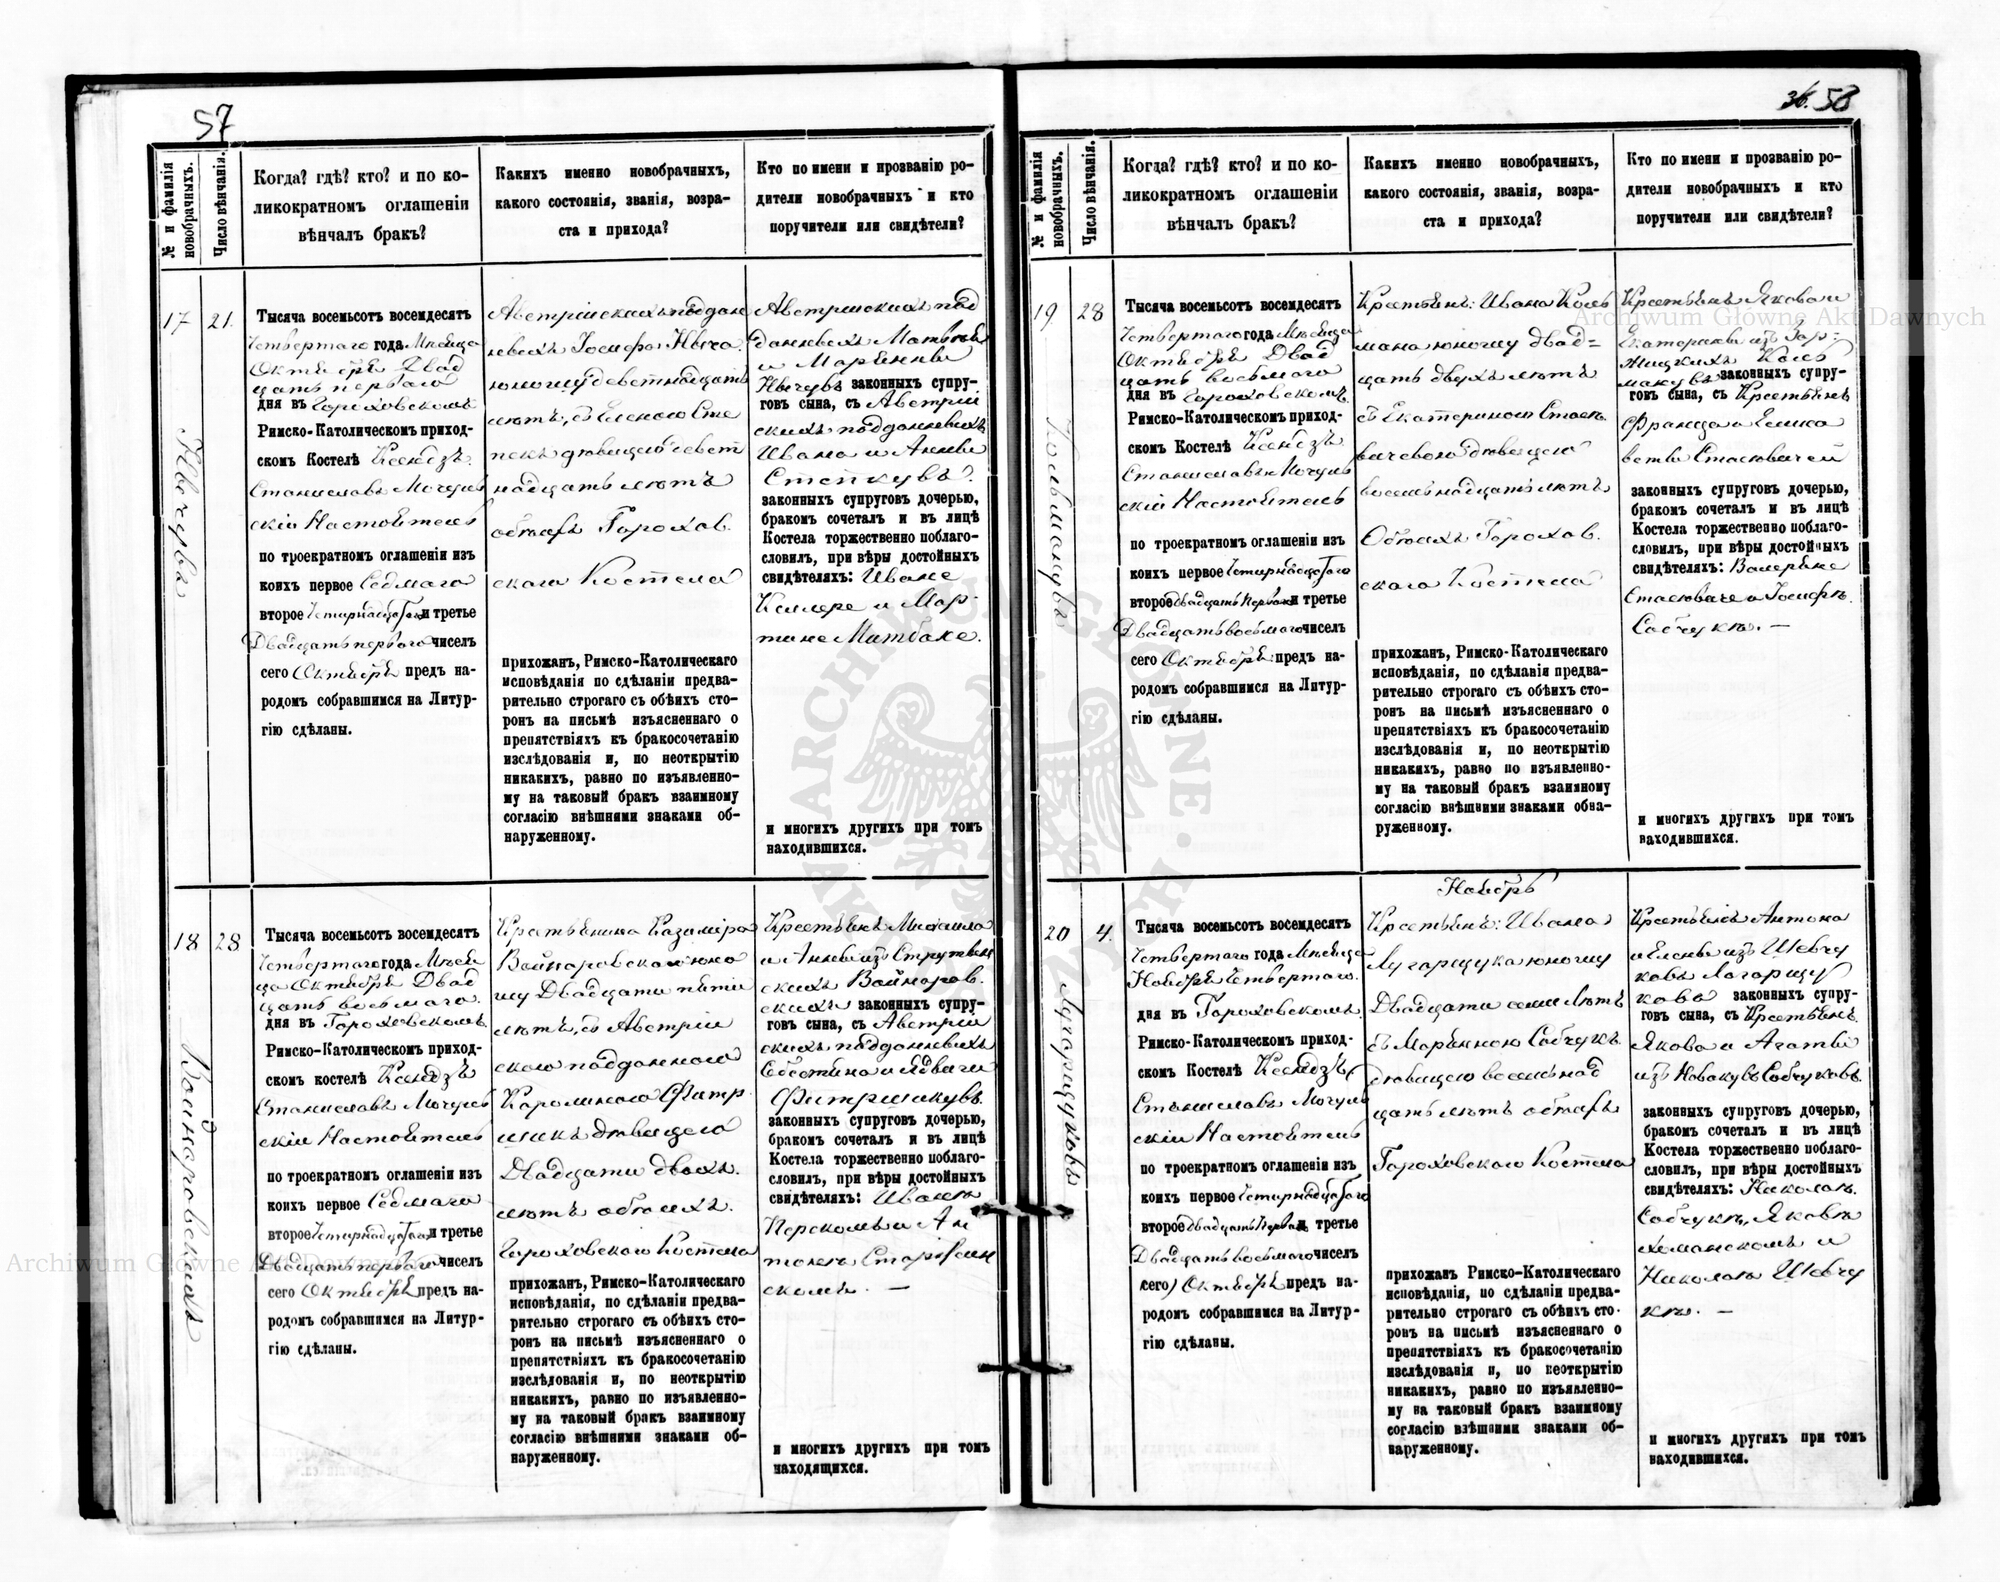 57
№ и фамилія новобрачныхъ.
Число вѣнчанія.
Когда? гдѣ? кто? и по ко-
ликократномъ оглашеніи
вѣнчалъ бракъ?
Каких именно новобрачныхъ,
какого состоянія, званія, возра-
ста и прихода?
Кто по имени и прозванію ро-
дители новобрачныхъ и кто
поручители или свидѣтели?
17
21.
Тысяча восемьсотъ восемдесятъ
Четвертаго года Мѣсяца
Октября Двад
цать перваго
дня въ Гороховскомъ
Римско-Католическомъ приход-
скомъ Костелѣ Ксендзъ
Станиславъ Мочуль
скій Настоятель
по троекратномъ оглашеніи изъ
коихъ первое Седмаго
второе Четырнадцатаго и третье
Двадцать перваго чиселъ
сего Октября предъ на-
родомъ собравшимся на Литур-
гію сдѣланы.
Австрійскихъ поддан
ныхъ Іосифа
юношу девятнадцать
лѣтъ, съ Еленою Сте
девицею девят
надцать лѣтъ
обоихъ Горохов.
скаго Костела
прихожан, Римско-Католическаго
исповѣданія по сдѣланіи предва-
рительно строгаго съ обѣихъ сто-
ронъ на письмѣ изъясненнаго о
препятствіяхъ къ бракосочетанію
изслѣдованія и, по неоткрытію
никакихъ, равно по изъявленно-
му на таковый бракъ взаимному
согласію внѣшними знаками об-
наруженному.
Австрійскихъ под
данныхъ Матвѣя
и Маріанны
законныхъ супру-
говъ сына, съ Австрій
скихъ подданныхъ
Ивана и Анны
законныхъ супруговъ дочерью,
бракомъ сочеталъ и въ лицѣ
Костела торжественно поблаго-
словилъ, при вѣры достойныхъ
свидѣтеляхъ: Иване
Келлере и Мар-
тине
и многихъ другихъ при томъ
находившихся.
18
28
Войнаровскихъ
Тысяча восемьсотъ восемдесятъ
Четвертаго года Мѣся
ца Октября Двад
цать восьмаго.
дня въ Гороховскомъ
Римско-Католическомъ приход-
скомъ костелѣ Ксендзъ
Станиславъ Мочуль
скій Настоятель
по троекратномъ оглашеніи изъ
коихъ первое Седмаго
второе Четырнадцатаго и третье
Двадцать перваго чиселъ
сего Октября предъ на-
родомъ собравшимся на Литур-
гію сдѣланы.
Крестьянина Казиміра
Войнаровскаго юно
шу Двадцати пяти
лѣтъ, съ Австрій
скою подданною
Каролиною Фитр
шикъ девицею
Двадцати двохъ
лѣтъ обоихъ
Гороховскаго Костела
прихожан, Римско-Католическаго
исповѣданія, по сдѣланіи предва-
рительно строгаго съ обѣихъ сто-
ронъ на письмѣ изъясненнаго о
препятствіяхъ къ бракосочетанію
изслѣдованія и, по неоткрытію
никакихъ, равно по изъявленно-
му на таковый бракъ взаимному
согласію внѣшними знаками об-
наруженному.
Крестьянъ Михаила
и Анны изъ
скихъ Войнаров.
скихъ законныхъ супру-
говъ сына, съ Австрій
скихъ подданныхъ
и
Фитршикувъ
законныхъ супруговъ дочерью,
бракомъ сочеталъ и въ лицѣ
Костела торжественно поблаго-
словилъ, при вѣры достойныхъ
свидѣтеляхъ: Иванъ
и Ан
скомъ. —
и многихъ другихъ при томъ
находящихся.
36. 58
№ и фамилія новобрачныхъ.
Число вѣнчанія.
Когда? гдѣ? кто? и по ко-
ликократномъ оглашеніи
вѣнчалъ бракъ?
Какихъ именно новобрачныхъ,
какого состоянія, званія, возра-
ста и прихода?
Кто по имени и прозванію ро-
дители новобрачныхъ и кто
поручители или свидѣтели?
19.
28
Кольманувъ
Тысяча восемьсотъ восемдесятъ
Четвертаго года Мѣсяца
Октября Двад
цать восьмаго
дня въ Гороховскомъ
Римско-Католическомъ приход-
скомъ Костелѣ Ксендзъ
Станиславъ Мочуль
скій Настоятель
по троекратномъ оглашеніи изъ
коихъ первое Четырнадцатаго
второе Двадцать Перваго и третье
Двадцать восьмаго чиселъ
сего Октября предъ на-
родомъ собравшимся на Литур-
гію сдѣланы.
Крестьянъ: Ивана Коль
мана юношу двад=
цать двухъ лѣтъ
съ Екатериною Стась
вичевою девицею
восемьнадцать лѣтъ
Обоихъ Горохов.
скаго Костела
прихожан, Римско-Католическаго
исповѣданія, по сдѣланіи предва-
рительно строгаго съ обѣихъ сто-
ронъ на письмѣ изъясненнаго о
препятствіяхъ къ бракосочетанію
изслѣдованія и, по неоткрытію
никакихъ, равно по изъявленно-
му на таковый бракъ взаимному
согласію внѣшними знаками обна-
руженному.
Крестьянъ Якова и
Екатерины изъ
Коль
манувъ законныхъ супру-
говъ сына, съ Крестьянъ
Франца и Елиса
веты Стасювичей
законныхъ супруговъ дочерью,
бракомъ сочеталъ и въ лицѣ
Костела торжественно поблаго-
словилъ, при вѣры достойныхъ
свидѣтеляхъ: Валеріане
Стасювиче и Іосифѣ
Собчукѣ. —
и многихъ другихъ при томъ
находившихся.
20
4.
Лугарщуковъ
Тысяча восемьсотъ восемдесятъ
Четвертаго года Мѣсяца
Ноября Четвертаго.
дня въ Гороховскомъ
Римско-Католическомъ приход-
скомъ Костелѣ Ксендзъ
Станиславъ Мочуль
скій Настоятель
по троекратномъ оглашеніи изъ
коихъ первое Четырнадцатаго
второе Двадцать Перваго и третье
Двадцать восьмаго чиселъ
(сего) Октября предъ на-
родомъ собравшимся на Литур-
гію сдѣланы.
Ноябрь
Крестьянъ: Ивана
Лугарщука юношу
Двадцати семи лѣтъ
съ Маріянною Собчукъ
девицею восемьнад
цать лѣтъ обоихъ
Гороховскаго Костела
прихожанъ Римско-Католическаго
исповѣданія, по сдѣланіи предва-
рительно строгаго съ обѣихъ сто-
ронъ на письмѣ изъясненнаго о
препятствіяхъ къ бракосочетанію
изслѣдованія и, по неоткрытію
никакихъ, равно по изъявленно-
му на таковый бракъ взаимному
согласію внѣшними знаками об-
наруженному.
Крестьянъ Антона
и Елены изъ Шевчу
ковъ Логарщу
ковъ законныхъ супру-
говъ сына, съ Крестьянъ
Якова и Агаты
изъ Новакувъ Собчуковъ
законныхъ супруговъ дочерью,
бракомъ сочеталъ и въ лицѣ
Костела торжественно поблаго-
словилъ, при вѣры достойныхъ
свидѣтеляхъ: Николаѣ
Собчукѣ, Яковѣ
и
Николаѣ Шевчу
кѣ. —
и многихъ другихъ при томъ
находившихся.
Archiwum Główne Akt Dawnych
Archiwum Główne Akt Dawnych
ARCHIWUM GŁÓWNE AKT DAWNYCH